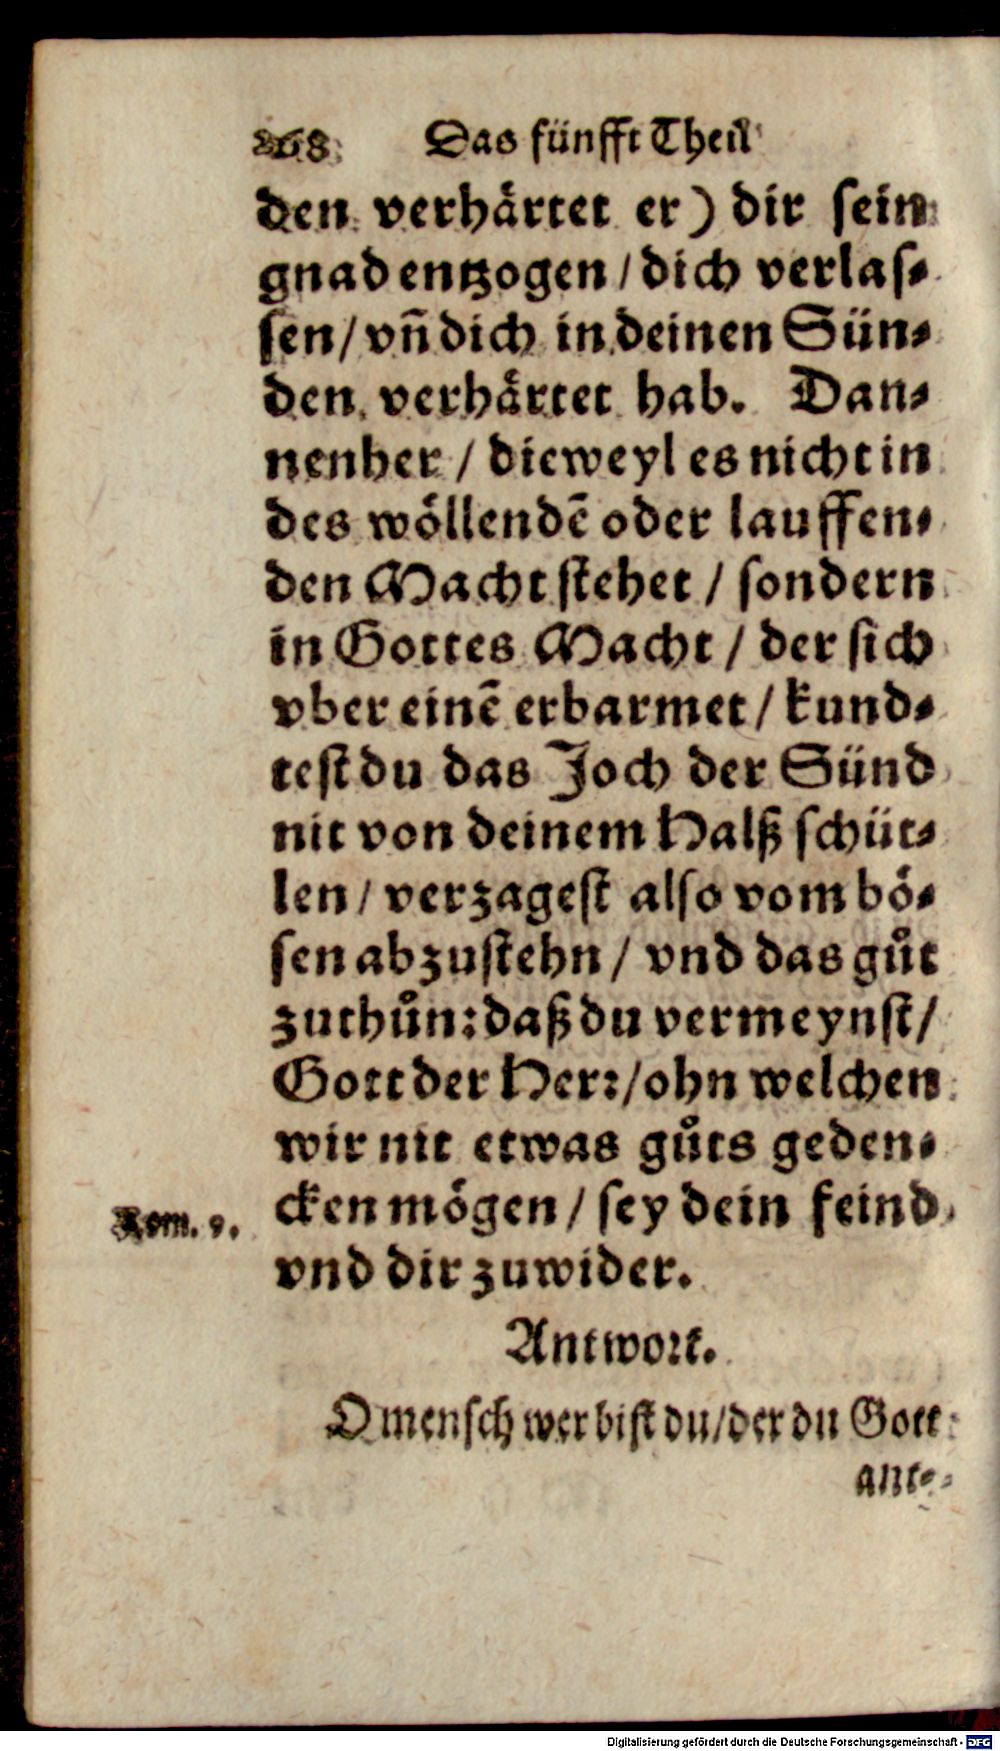 268 Das fünfft Theil
den verhärtet er) dir sein
gnad entzogen / dich verlas⸗
sen / vñ dich in deinen Sün⸗
den verhärtet hab. Dan⸗
nenher / dieweyl es nicht in
des wöllendē oder lauffen⸗
den Macht stehet / sondern
in Gottes Macht / der sich
vber einē erbarmet / kund⸗
test du das Joch der Sünd
nit von deinem Halß schüt⸗
len / verzagest also vom bö⸗
sen abzustehn / vnd das gůt
zuthůn: daß du vermeynst /
Gott der Herꝛ / ohn welchen
wir nit etwas gůts geden⸗
cken mögen / sey dein feind
Rom. 9.
vnd dir zuwider.
Antwort.
O mensch wer bist du / der du Gott
ant⸗
Digitalisierung gefördert durch die Deutsche Forschungsgemeinschaft - DFG